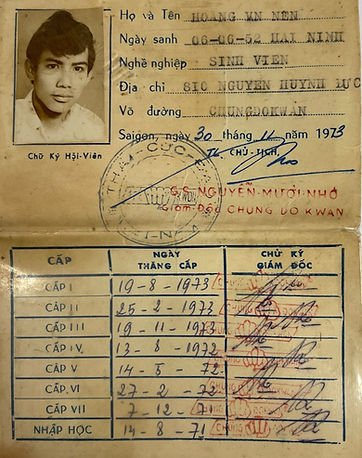 Họ và Tên HOANG VAN NEN
Ngày sanh 06-06-52 HAI NINH
Nghề nghiệp SINH VIEN
Địa chỉ SIO NGUYEN HUYNH DUC
Võ đường CHUNGDOKWAN
Saigon, ngày 30 tháng 11 năm 1973
TL CHỦ-TỊCH,
Chữ Ký Hội-Viên
G.S NGUYỄN-MƯỜI-NHỎ
Giám-Đốc CHUNG DO KWAN
CẤP NGÀY THÁNG CẤP CHỮ KÝ GIÁM ĐỐC
CẤP I 19-8-1973
CẤP II 25-2-1973
CẤP III 19-11-1973
CẤP IV 13-8-1972
CẤP V 14-5-72
CẤP VI 27-2-72
CẤP VII 7-12-71
NHẬP HỌC 14-8-71